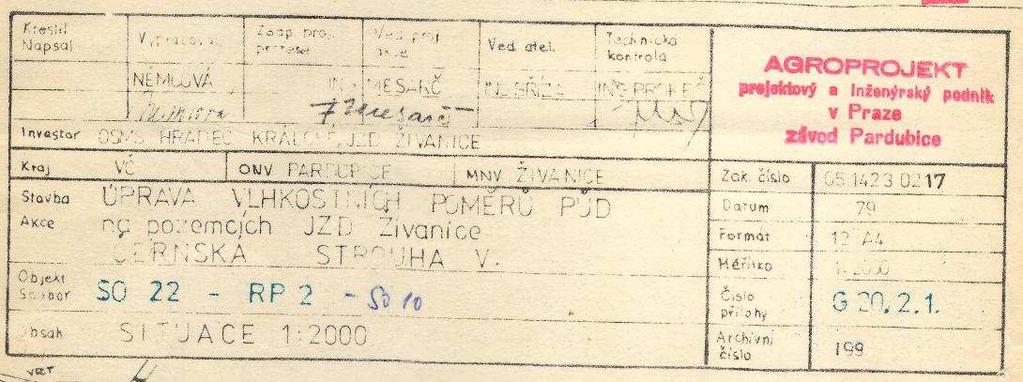 Kreslil
Napsal
Vypracoval
Zodp. proj.
profese
Ved. proj.
akce
Ved. atel.
Technická
kontrola
NĚMCOVÁ
ING MESARČ
ING BŘÍZA
ING PROKEŠ
AGROPROJEKT
projektový a inženýrský podnik
v Praze
závod Pardubice
Investor OSMS HRADEC KRÁLOVÉ, JZD ŽIVANICE
Kraj VČ ONV PARDUBICE MNV ŽIVANICE
Zak. číslo 05 1423 0217
Stavba ÚPRAVA VLHKOSTNÍCH POMĚRŮ PŮD
Datum 79
Akce na pozemcích JZD Živanice
Formát 12 A4
ČERNSKÁ STROUHA V.
Měřítko 1:2000
Objekt
Soubor SO 22 - RP 2 - SO 10
Číslo
přílohy G 20.2.1.
Obsah SITUACE 1:2000
Archivní
číslo 199
VRT